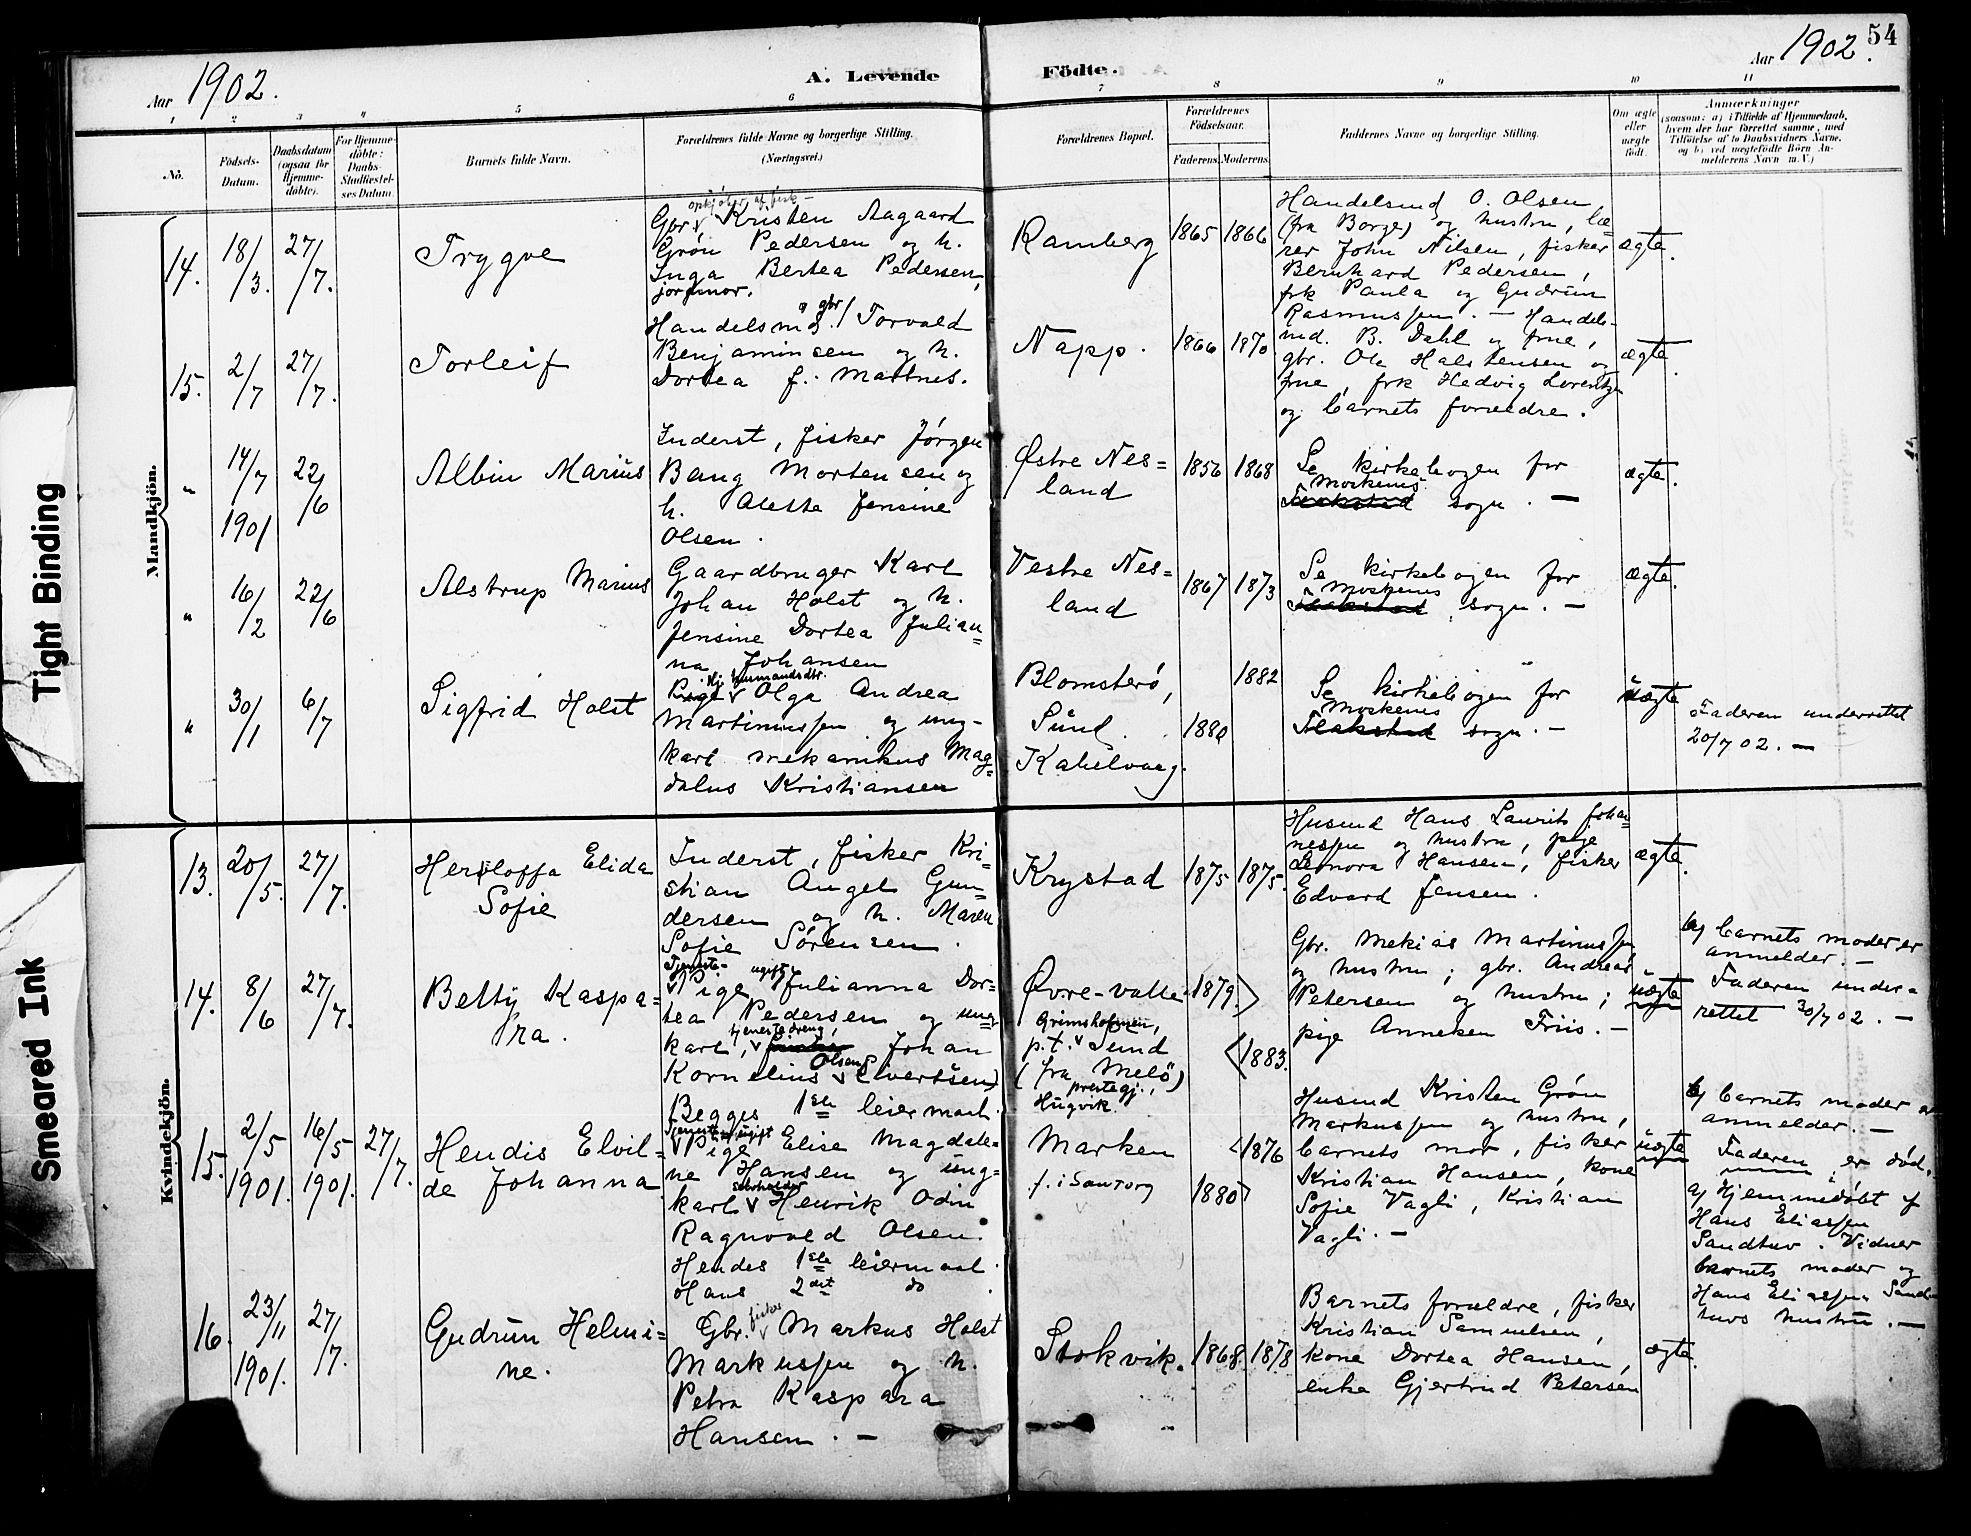 54
Aar 1902.
A. Levende Födte.
Aar 1902.
1 2 3 4 5 6 7 8 9 10 11
Nò.
Födsels-Datum.
Daabsdatum (ogsaa for Hjemme-döbte).
For Hjemme-döbte: Daabs Stadfæstel-ses Datum.
Barnets fulde Navn.
Forældrenes fulde Navne og borgerlige Stilling.
(Næringsvei.)
Forældrenes Bopæl.
Forældrenes Födselsaar.
Faderens. Moderens.
Faddernes Navne og borgerlige Stilling.
Om ægte eller uægte födt.
Anmærkninger
(saasom: a) i Tilfælde af Hjemmedaab,
hvem der har forrettet samme, med
Tilföielse af to Daabsvidners Navne,
og b) ved uægtefödte Börn An-
melderens Navn m. V.)
Tight Binding
Smeared Ink
Mandkjön.
14. 18/3. 27/7. Trygve
opkjöber af fisk
Gbr, Kristen Aagaard
Grön Pedersen og h.
Inga Bertea Pedersen,
jordmor.
Ramberg 1865 1866
Handelsmd O. Olsen
(fra Borge) og hustru, læ-
rer John Nilsen, fisker
Bernhard Pedersen,
frk Paula og Gudrun
Rasmussen. —
ægte.
15. 2/7 27/7. Torleif
Handelsmd. og gbr Torvald
Benjaminsen og h.
Dortea f. Martnes.
Napp. 1866 1870
Handels-
md. B. Dahl og frue,
gbr. Ole Halstensen og
frue, frk Hedvig Lorentzen
og barnets forældre.
ægte.
" 14/7 1901 22/6 Albin Marius
Inderst, fisker Jörgen
Bang Mortensen og
h. Aletta Jensine
Olsen.
Østre Nes=
land
1856 1868
Se kirkebogen for
Moskenes
Flakstad sogn. —
ægte.
" 16/2 22/6 Alstrup Marius
Gaardbruger Karl
Johan Holst og h.
Jensine Dortea Julian=
na Johansen
Vestre Nes=
land
1867 1873
Se kirkebogen for
Moskenes
Flakstad sogn. —
ægte.
" 30/1 6/7 Sigfrid Holst
Pige Olga Andrea
Martinussen og ung-
karl mekanikus Mag=
dalus Kristiansen
Blomsterö,
Sund.
Kabelvaag.
1880 1882
Se kirkebogen for
Moskenes
Flakstad sogn. —
uægte
Faderen underrettet
20/7 02. —
Kvindekjön.
13. 20/5. 27/7. Herloffa Elida
Sofie
Inderst, fisker Kri-
stian Angel Gun=
dersen og h. Maren
Sofie Sörensen.
Krystad 1875 1875.
Husmd Hans Laurits Johan=
nessen og hustru, pige
Leonora Hansen, fisker
Edvard Jensen.
ægte.
14. 8/6 27/7. Betty Kaspa=
ra.
Tjeneste- ugift
Pige Julianna Dor-
tea Pedersen og ung=
tjenestedreng,
karl, fisker Johan
Olsen
Kornelius (Sivertsen)
Begges 1ste leiermaal.
Øvre-valle
Grimsholmen,
p.t. Sund
(fra Melö)
prestegj.,
Hugvik.
1879. 1883.
Gbr. Mekias Martinussen
og hustru; gbr. Andreas
Petersen og hustru;
pige Anneken Friis. —
uægte
b) barnets moder er
anmelder. —
Faderen under-
rettet 30/7 02. —
15. 2/5 1901. 16/5 1901. 27/7. Hendis Elvil=
de Johanna
Pige Elise Magdale-
ne Hansen og ung-
karl Henrik Odin
Ragnvald Olsen.
Hendes 1ste leiermaal.
Hans 2det do.
Marken
1876
1880
Husmd Kristen Grön
Markussen og hustru,
barnets mor, fisker
Kristian Hansen, kone
Sofie Vagli, Kristian
Vagli. —
uægte
b) barnets moder er
anmelder. —
Faderen er död.
a) Hjemmedöbt af
Hans Eliassen
Sandhav. Vidner
barnets moder og
Hans Eliassen Sand-
havs hustru. —
16. 23/11 1901. 27/7. Gudrun Helmi=
ne.
fisker
Gbr. Markus Holst
Markussen og h.
Petra Kaspara
Hansen. —
Stokvik. 1868. 1878
Barnets forældre, fisker
Kristian Samuelsen,
kone Dortea Hansen,
enke Gjertrud Petersen
ægte.